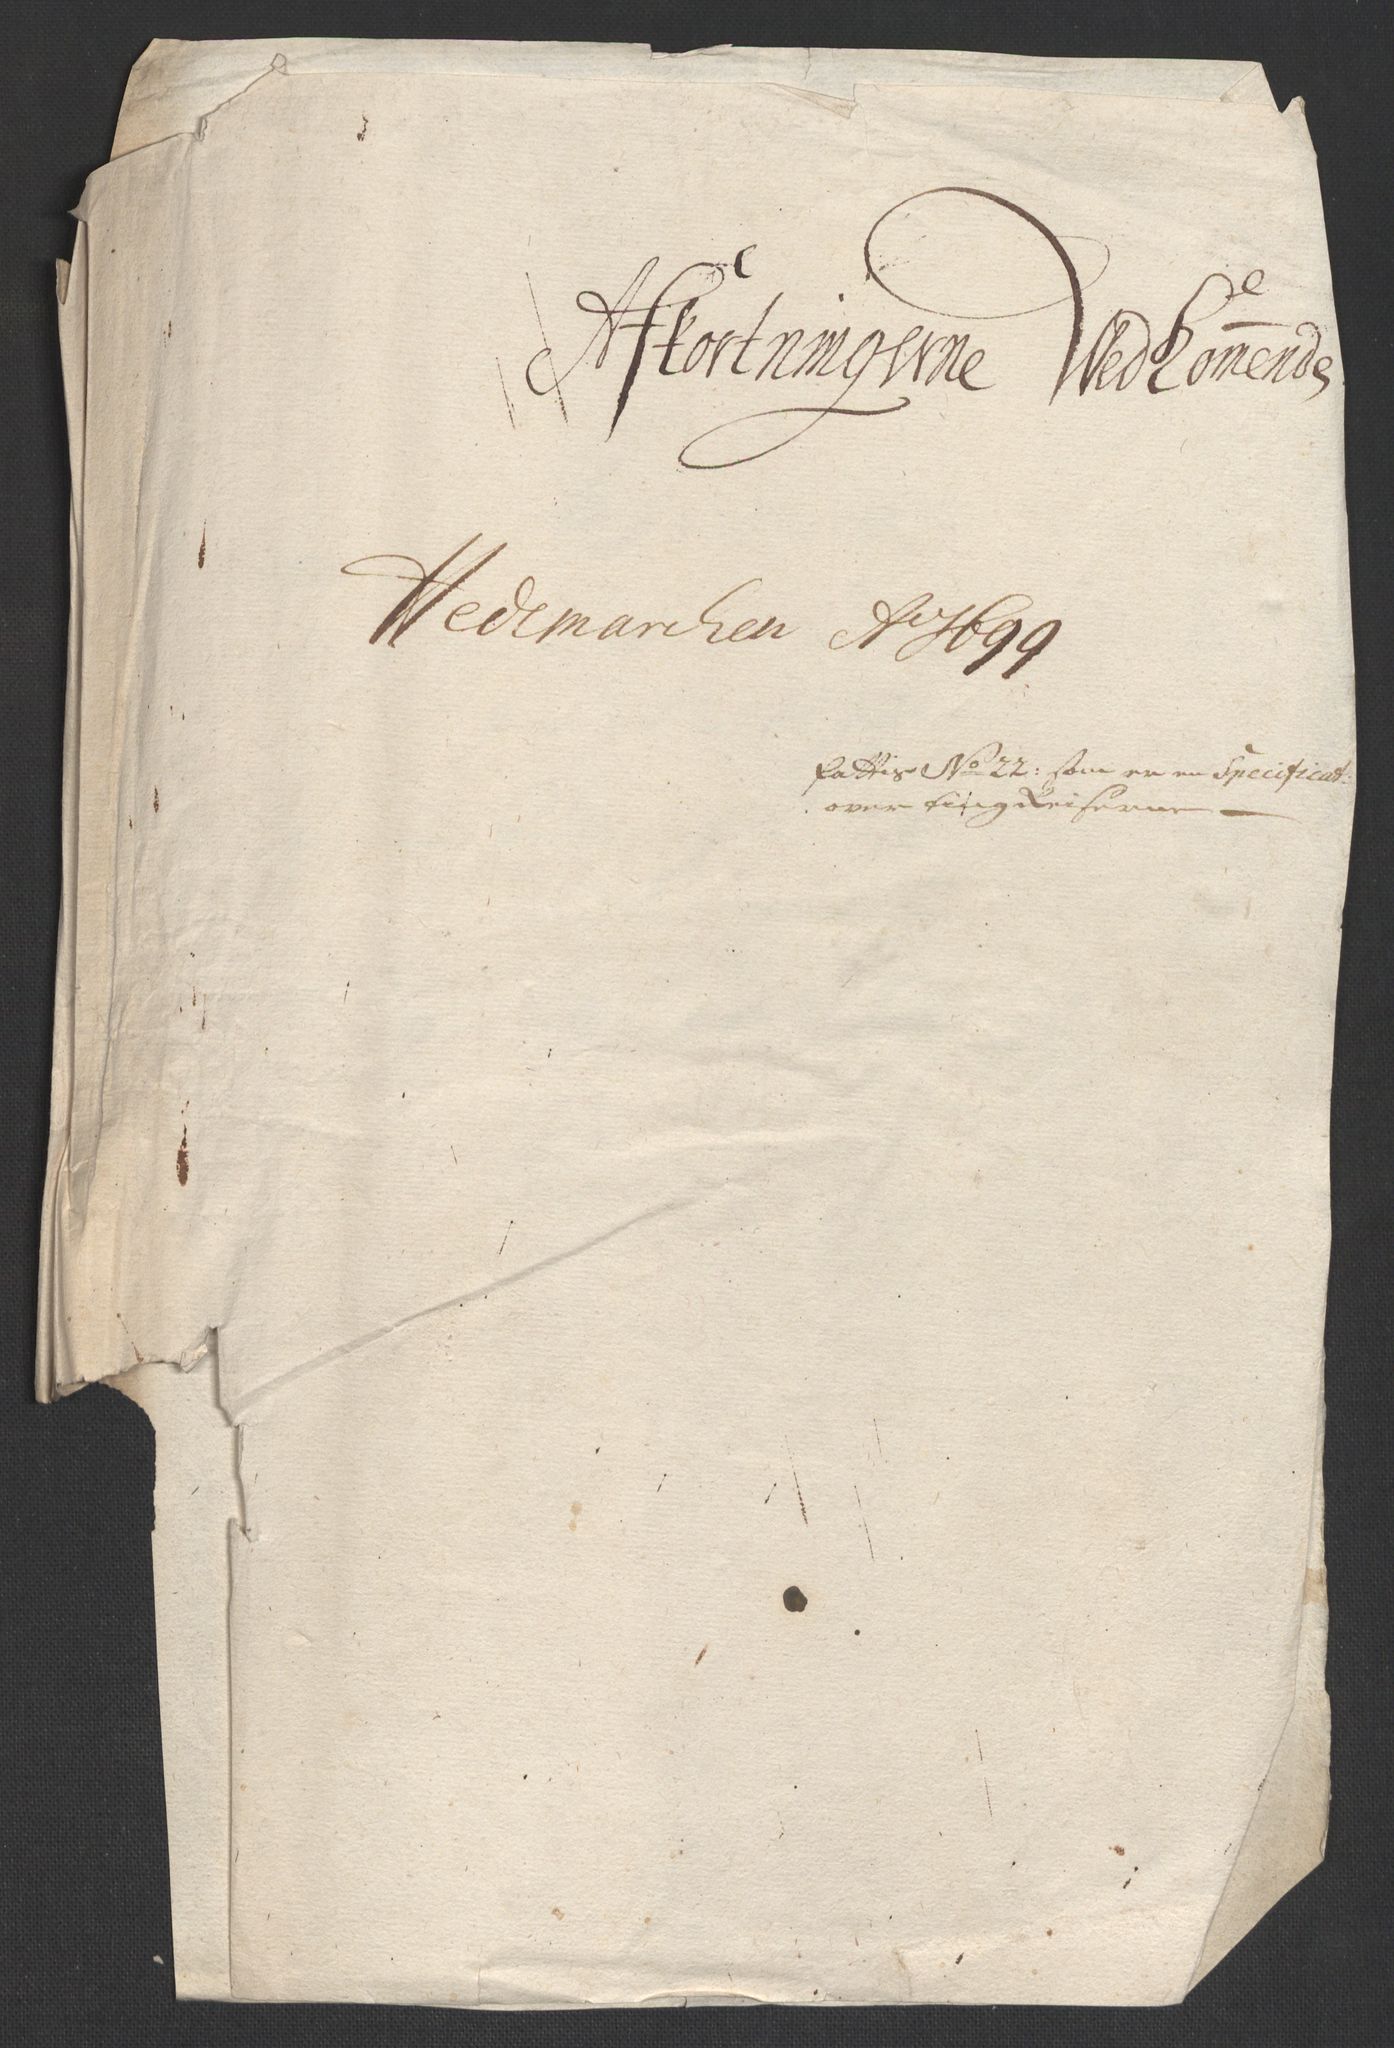 Afkortningerne Wedkom̄ende
Hedemarchen Ao 1699
fattis No 22: som er en Specificat:
over ting Reiserne